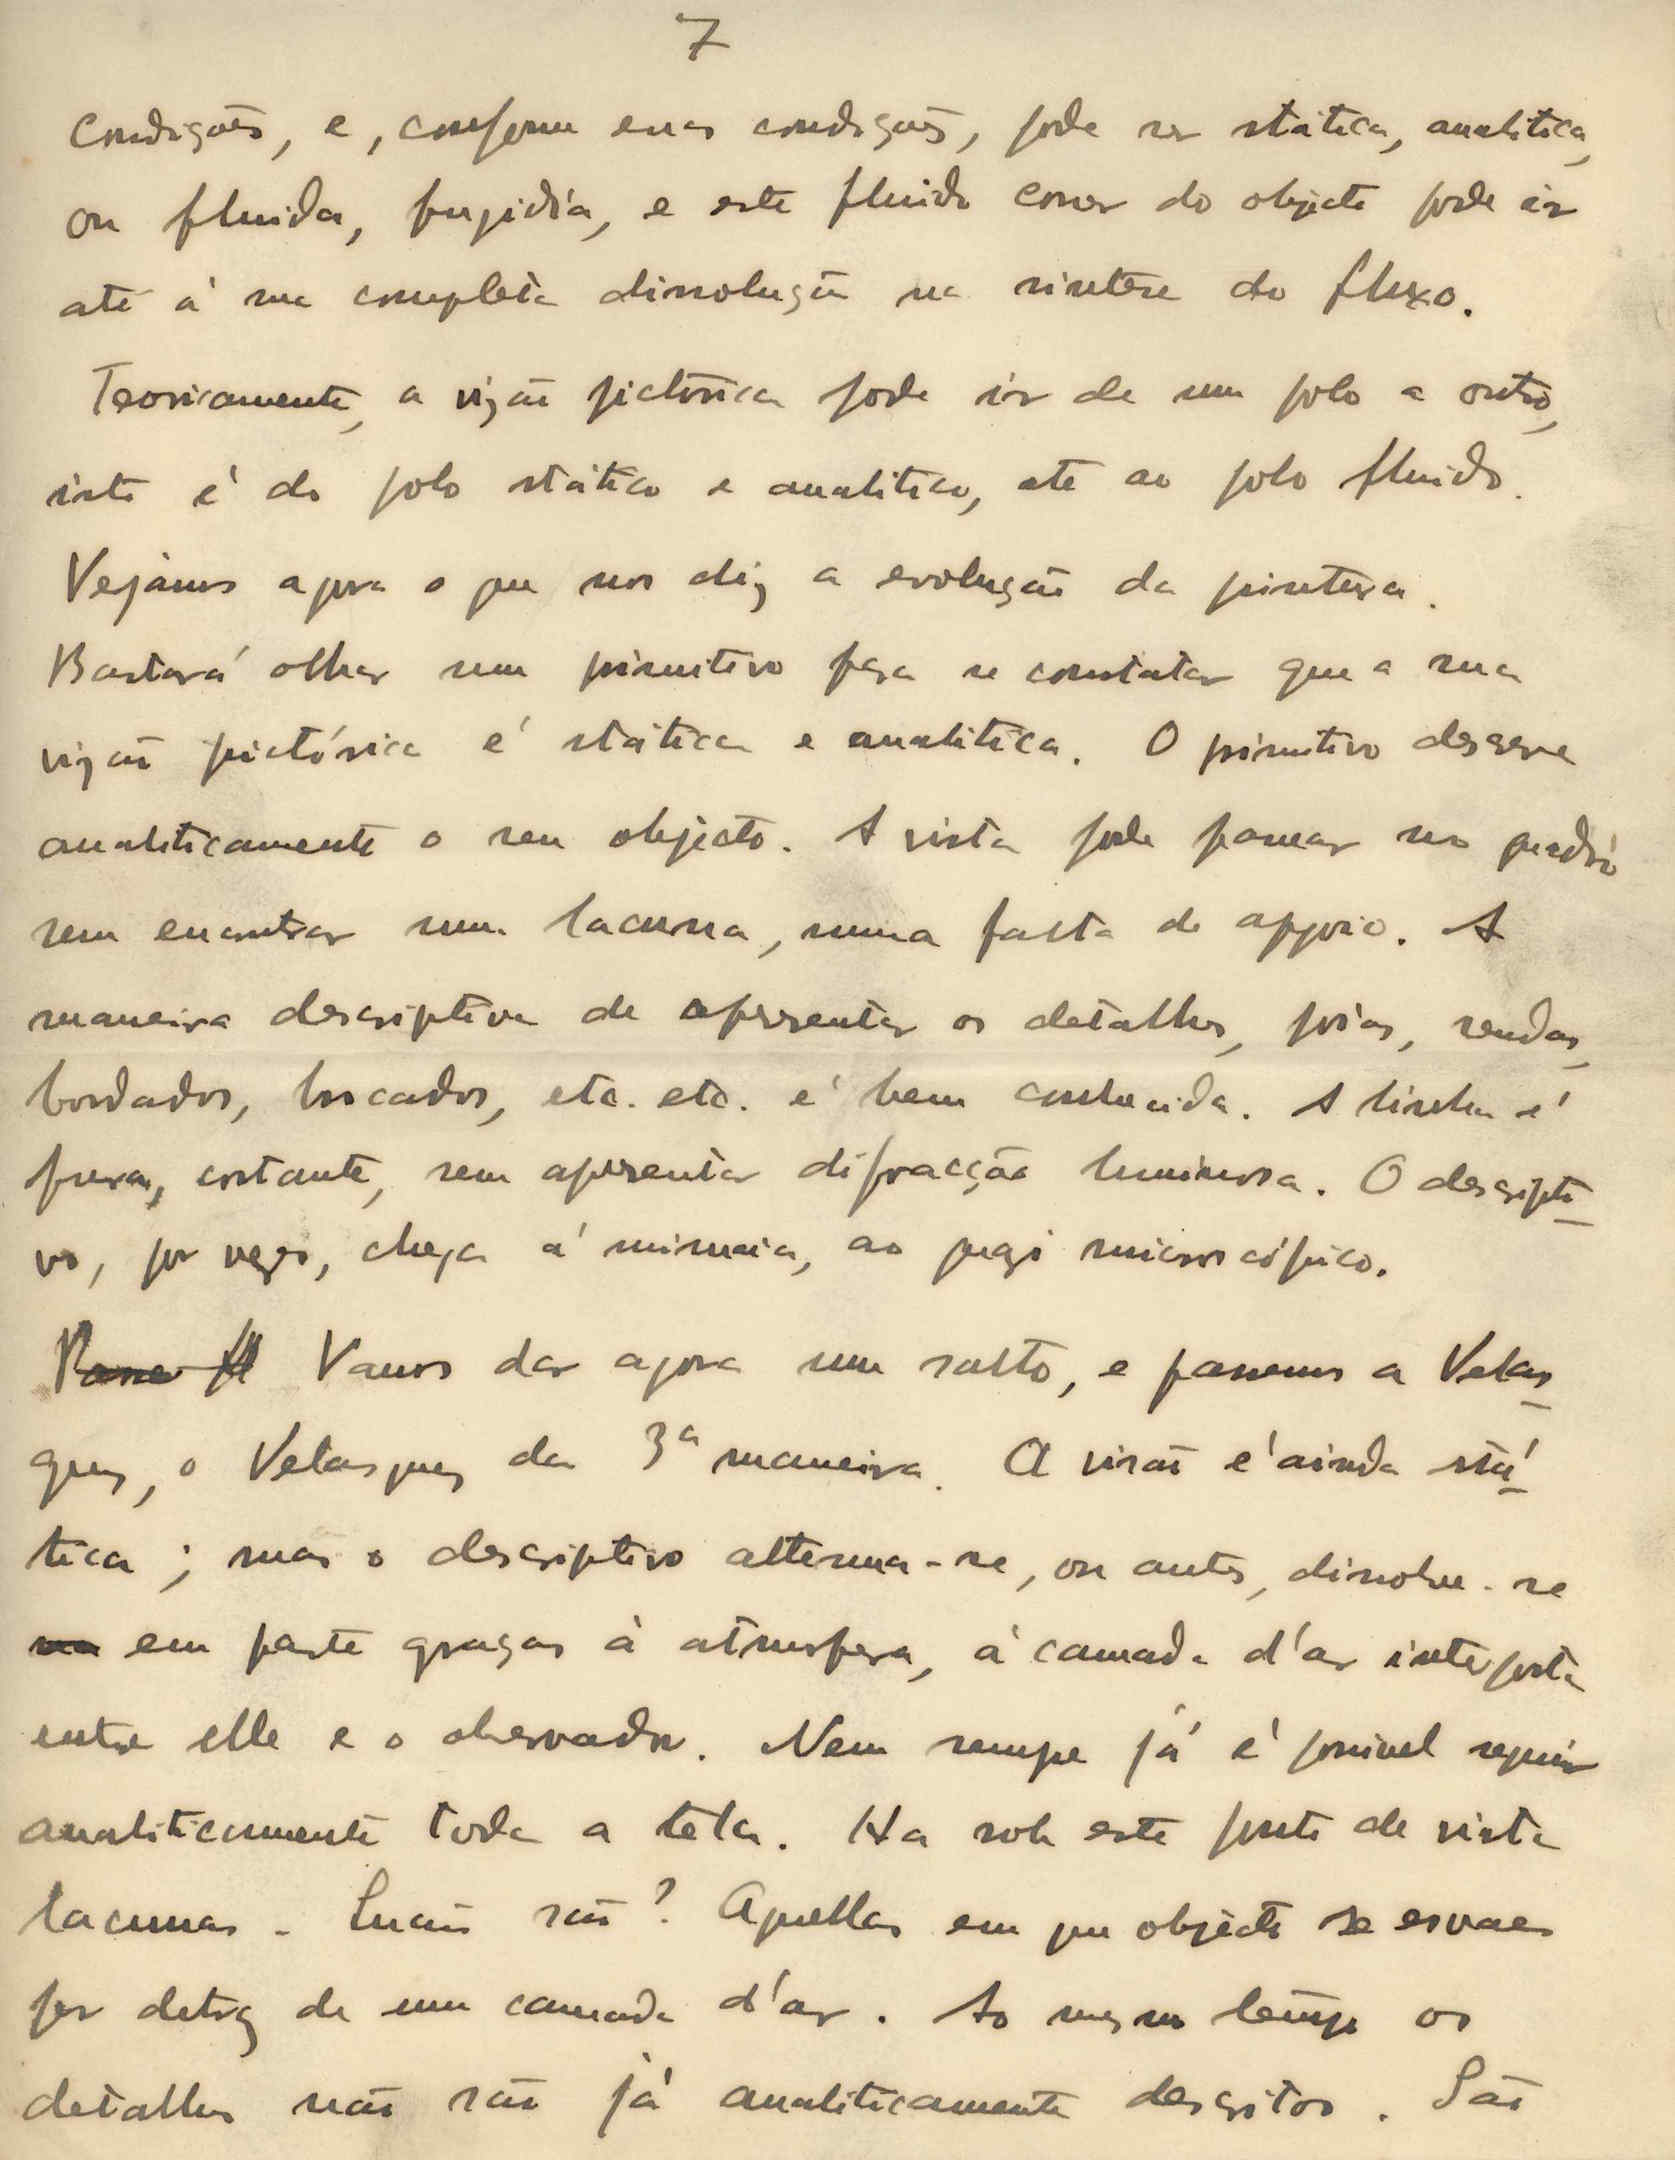 7
condições, e, conforme essas condições, pode ser stática, analitica,
ou fluida, fugidia, e este fluido correr do objecto pode ir
até á sua completa dissolução na sintese do fluxo.
Teoricamente, a vizão pictórica pode ir de um polo a outro,
isto é do polo stático e analitico, até ao polo fluido.
Vejâmos agora o que nos diz a evolução da pintura.
Bastará olhar um primitivo para se constatar que a sua
vizão pictórica é stática e analitica. O primitivo descreve
analiticamente o seu objecto. A vista pode passear no quadro
sem encontrar uma lacuna, numa falta de appoio. A
maneira descriptiva de apresentar os detalhes, joias, rendas,
bordados, brocados, etc. etc. é bem conhecida. A linha é
pura, cortante, sem apresentar difracção luminosa. O descripti-
vo, por vezes, chega á minucia, ao quazi microscópico.
Vamos dar agora um salto, e passemos a Velas-
quez, o Velasquez da 3ª maneira. A visão é ainda stá-
tica; mas o descriptivo alterna-se, ou antes, dissolve-se
em parte graças à atmosfera, á camada d'ar interposta
entre elle e o observador. Nem sempre já é possivel seguir
analiticamente toda a tela. Ha sob este ponto de vista
lacunas. Quais são? Aquellas em que objecto se esvae
por detraz de uma camada d'ar. Ao mesmo tempo os
detalhes não são já analiticamente descritos. São